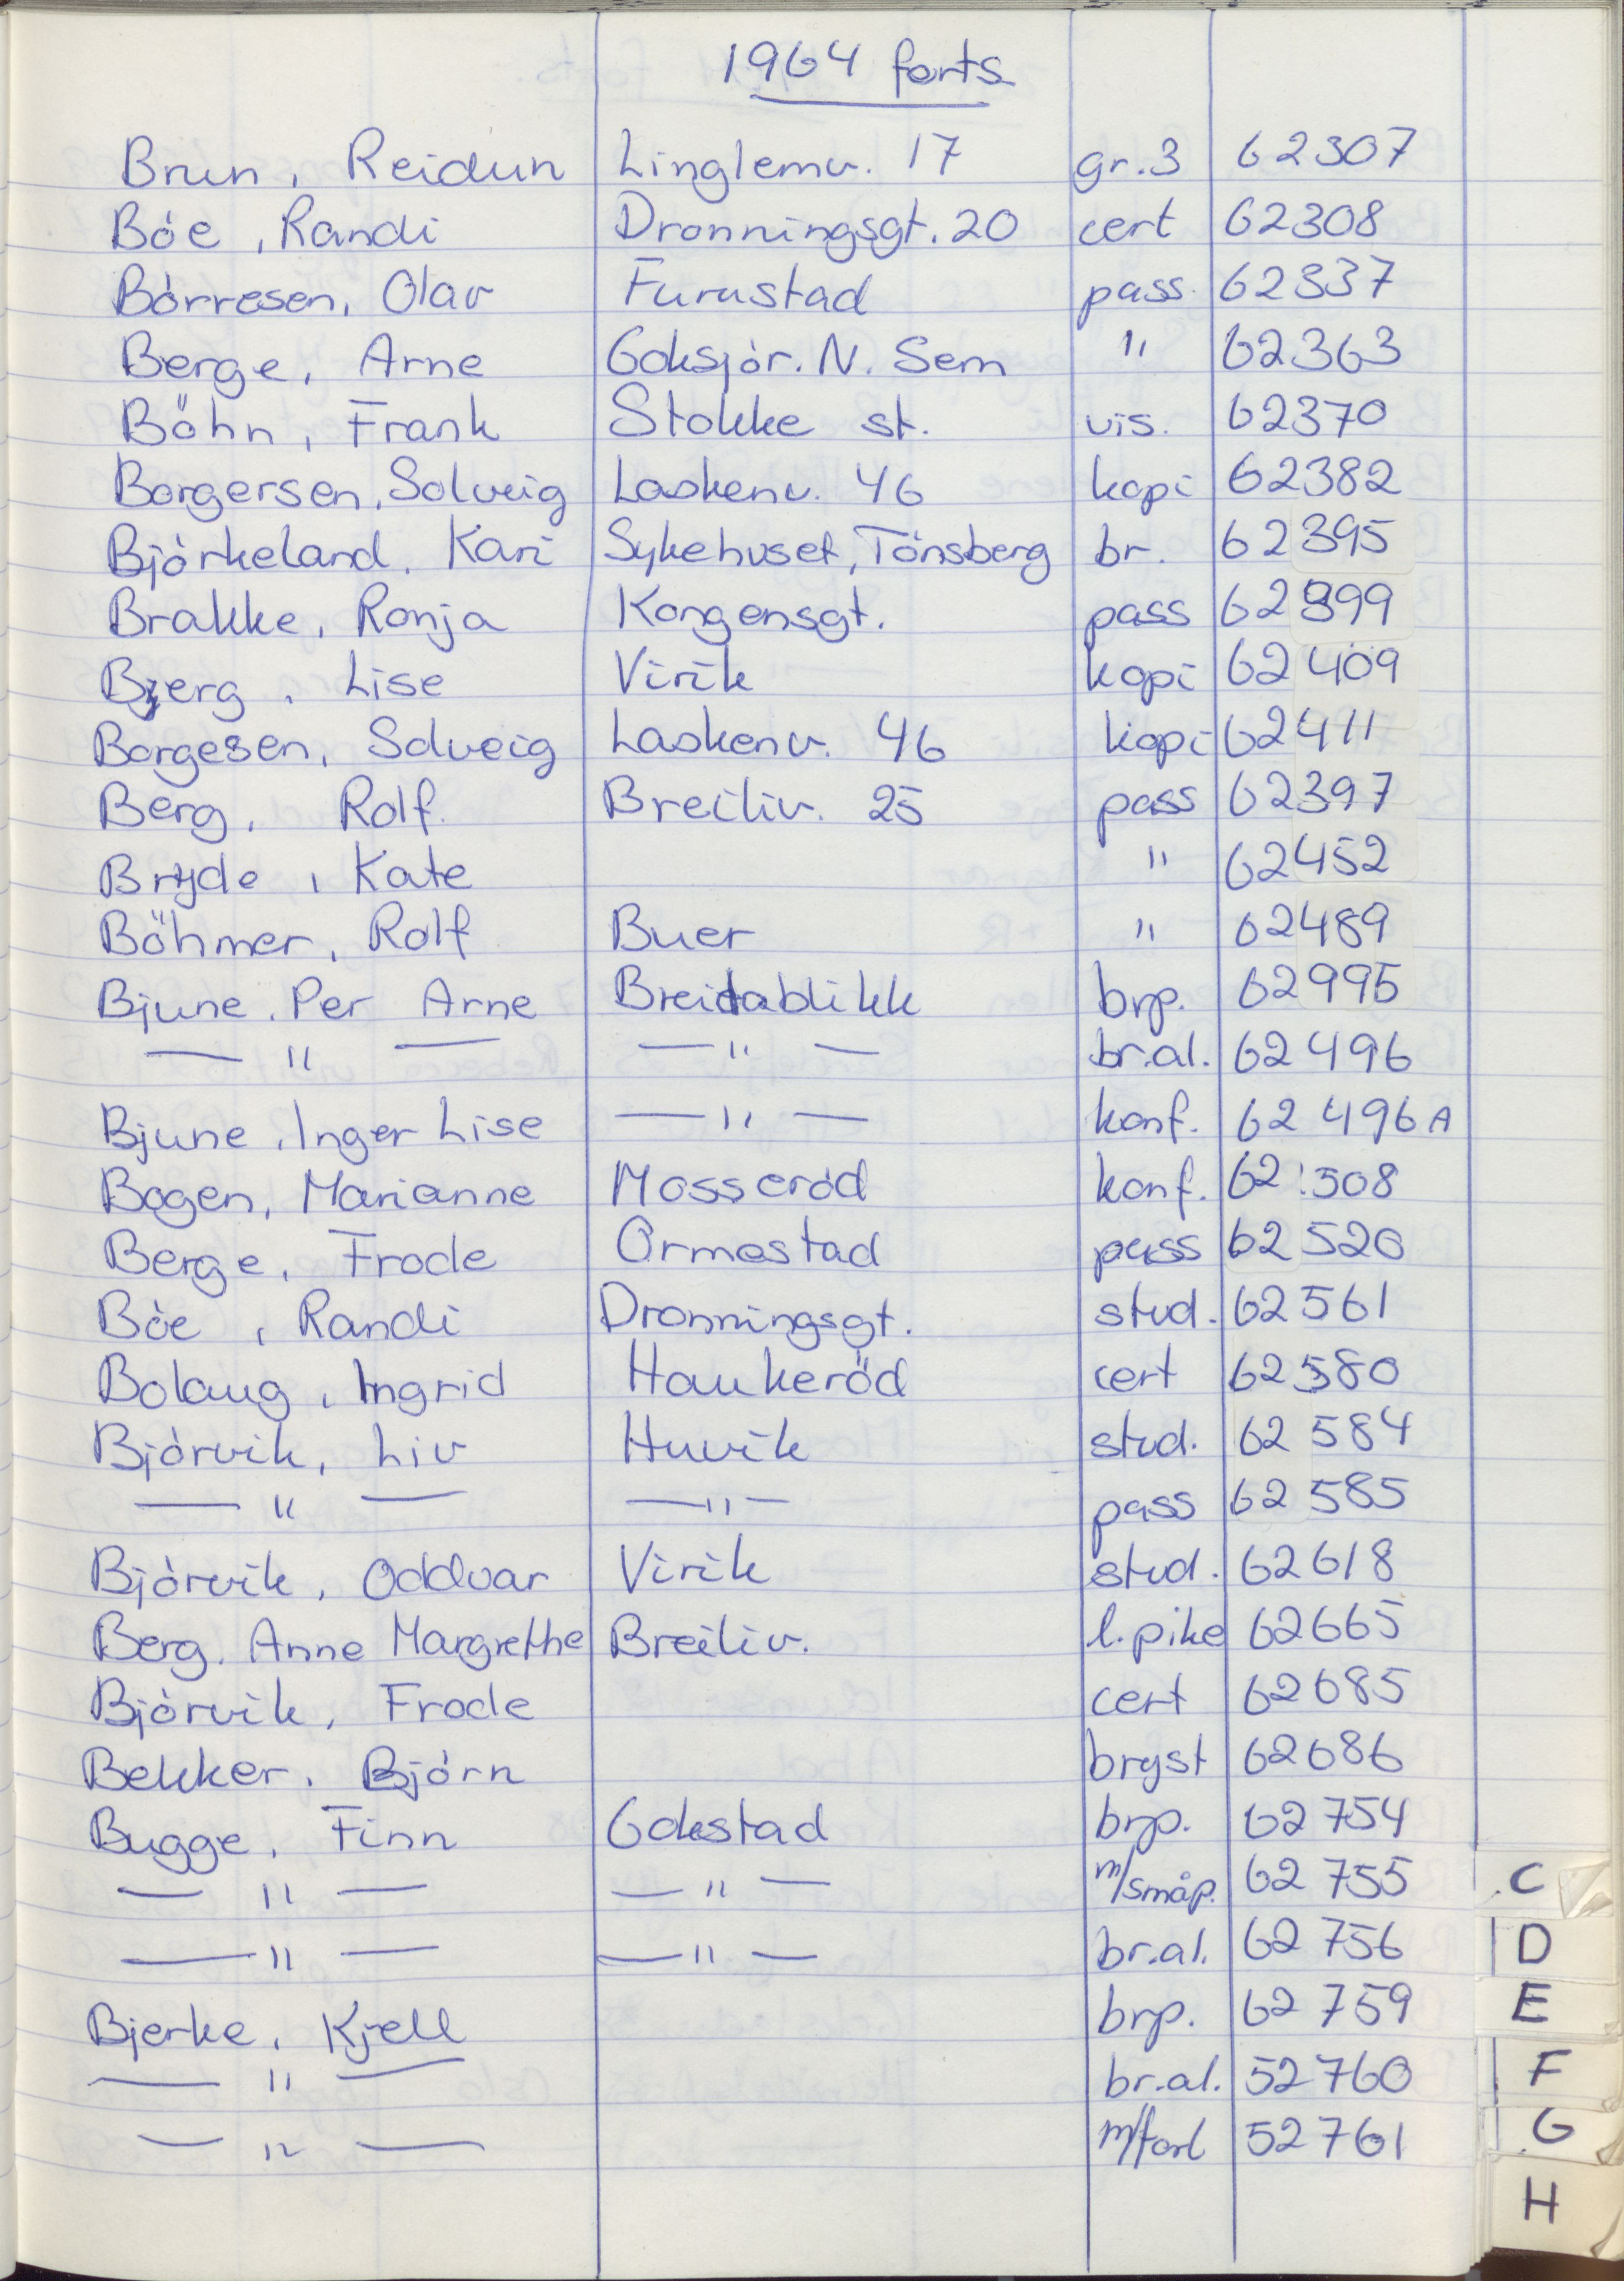 1964 forts
Brun, Reidun Linglemv. 17 gr.3 62307
Böe, Randi Dronningsgt. 20 cert 62308
Börresen, Olav Furustad pass. 62337
Berge, Arne Goksjör. N. Sem " 62363
Böhn, Frank Stokke st. vis. 62370
Borgersen, Solveig Laskenv. 46 kopi 62382
Björkeland, Kari Sykehuset, Tönsberg br. 62395
Brakke, Ronja Kongensgt. pass 62399
Bjerg, Lise Virik kopi 62409
Borgesen, Solveig Laskenv. 46 kopi 62411
Berg, Rolf. Breiliv. 25 pass 62397
Bryde, Kate " 62452
Böhmer, Rolf Buer " 62489
Bjune, Per Arne Breidablikk brp. 62995
— " — — " — br.al. 62496
Bjune, Inger Lise — " — konf. 62 496 A
Bogen, Marianne Mosseröd konf. 62 508
Berge, Frode Ormestad pass 62 520
Böe, Randi Dronningsgt. stud. 62561
Bolaug, Ingrid Haukeröd cert 62580
Björvik, Liv Huvik stud. 62 584
— " — — " — pass 62 585
Björvik, Oddvar Virik stud. 62618
Berg, Anne Margrethe Breiliv. l.pike 62665
Björvik, Frode cert 62685
Bekker, Björn bryst 62686
Bugge, Finn Gokstad brp. 62754
— " — — " — m/småp. 62 755
— " — — " — br.al. 62 756
Bjerke, Kjell brp. 62 759
— " — br.al. 52760
— " — m/forl 52761
C
D
E
F
G
H